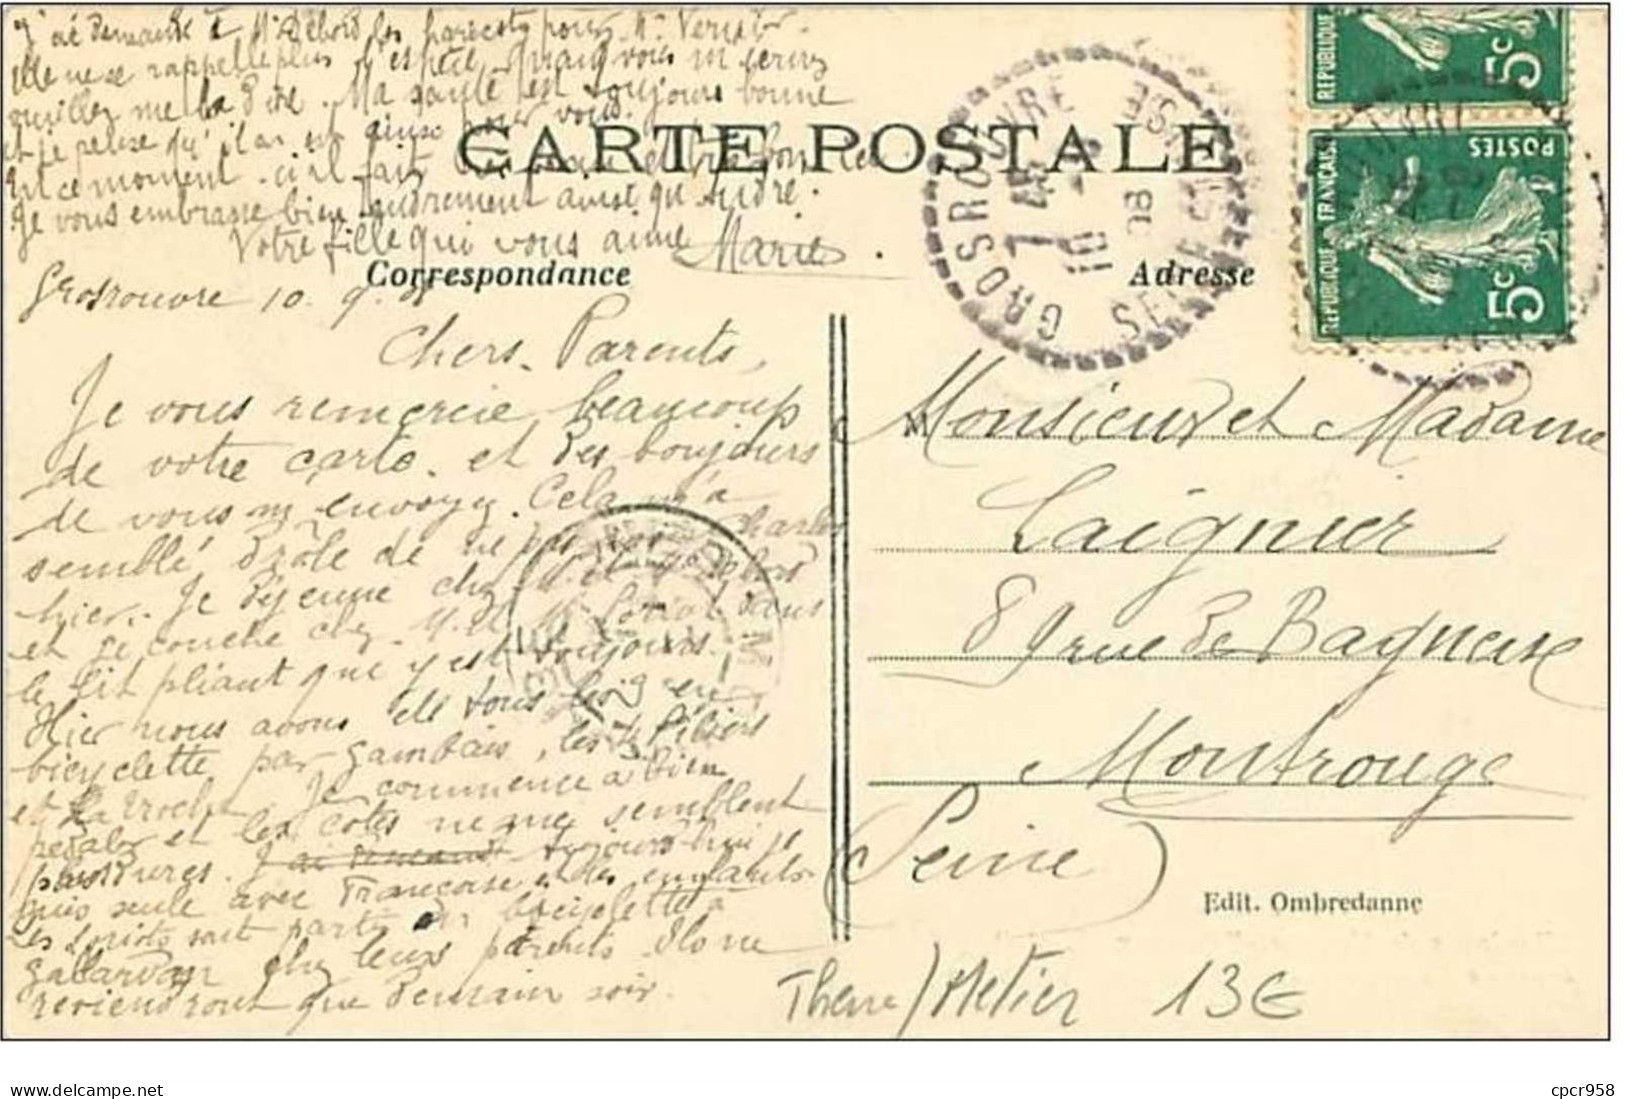 J'ai demandé à Me Debord les haricots pour Mr
elle ne se rappelle plus l'espèce. Quand vous m'écrirez
veuillez me la dire. Ma santé est toujours bonne
et je pense qu'il en est ainsi pour vous.
En ce moment-ci il fait
Je vous embrasse bien tendrement ainsi qu'André.
Votre fille qui vous aime Marie.
CARTE POSTALE
Correspondance
Adresse
GROSROUVRE
7 45
10 - 9
08
SEINE
REPUBLIQUE
5c
POSTES
REPUBLIQUE FRANÇAISE
5c
Grosrouvre 10. 9. 08
Chers Parents,
Je vous remercie beaucoup
de votre carte. et des bonjours
de vous m'envoyez. Cela m'a
semblé drôle de ne pas
hier. Je déjeune chez M. et Me Debord
et je couche chez M. et Me Loriot dans
le lit pliant que y est toujours.
Hier nous avons été tous en
bicyclette par Gambais, les 4 Piliers
et La Troche. Je commence à bien
pédaler et les côtes ne me semblent
plus dures. J'ai demandé aujourd'hui je
suis seule avec Françoise et les enfants
Les Loriots sont partis en bicyclette à
Gallardon chez leurs parents. Ils ne
reviendront que demain soir.
Monsieur et Madame
Laignier
89 rue de Bagneux
Montrouge
(Seine)
Edit. Ombredanne
Theme/Metier 13€
www.delcampe.net
cpcr958